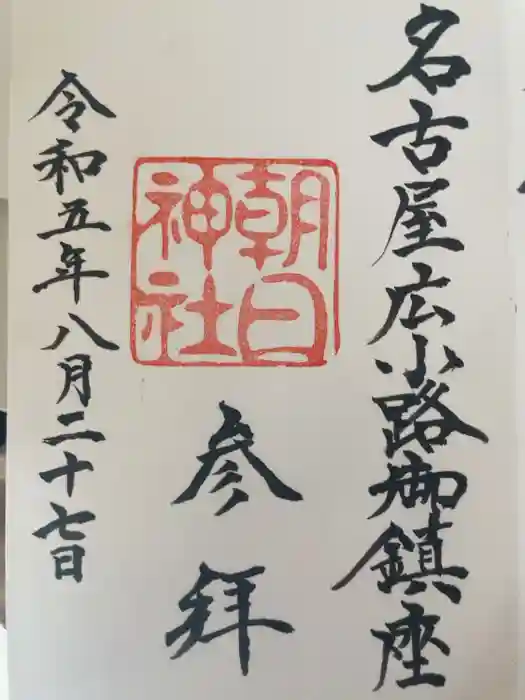 名古屋広小路御鎮座
朝日
神社
参拝
令和五年八月二十七日